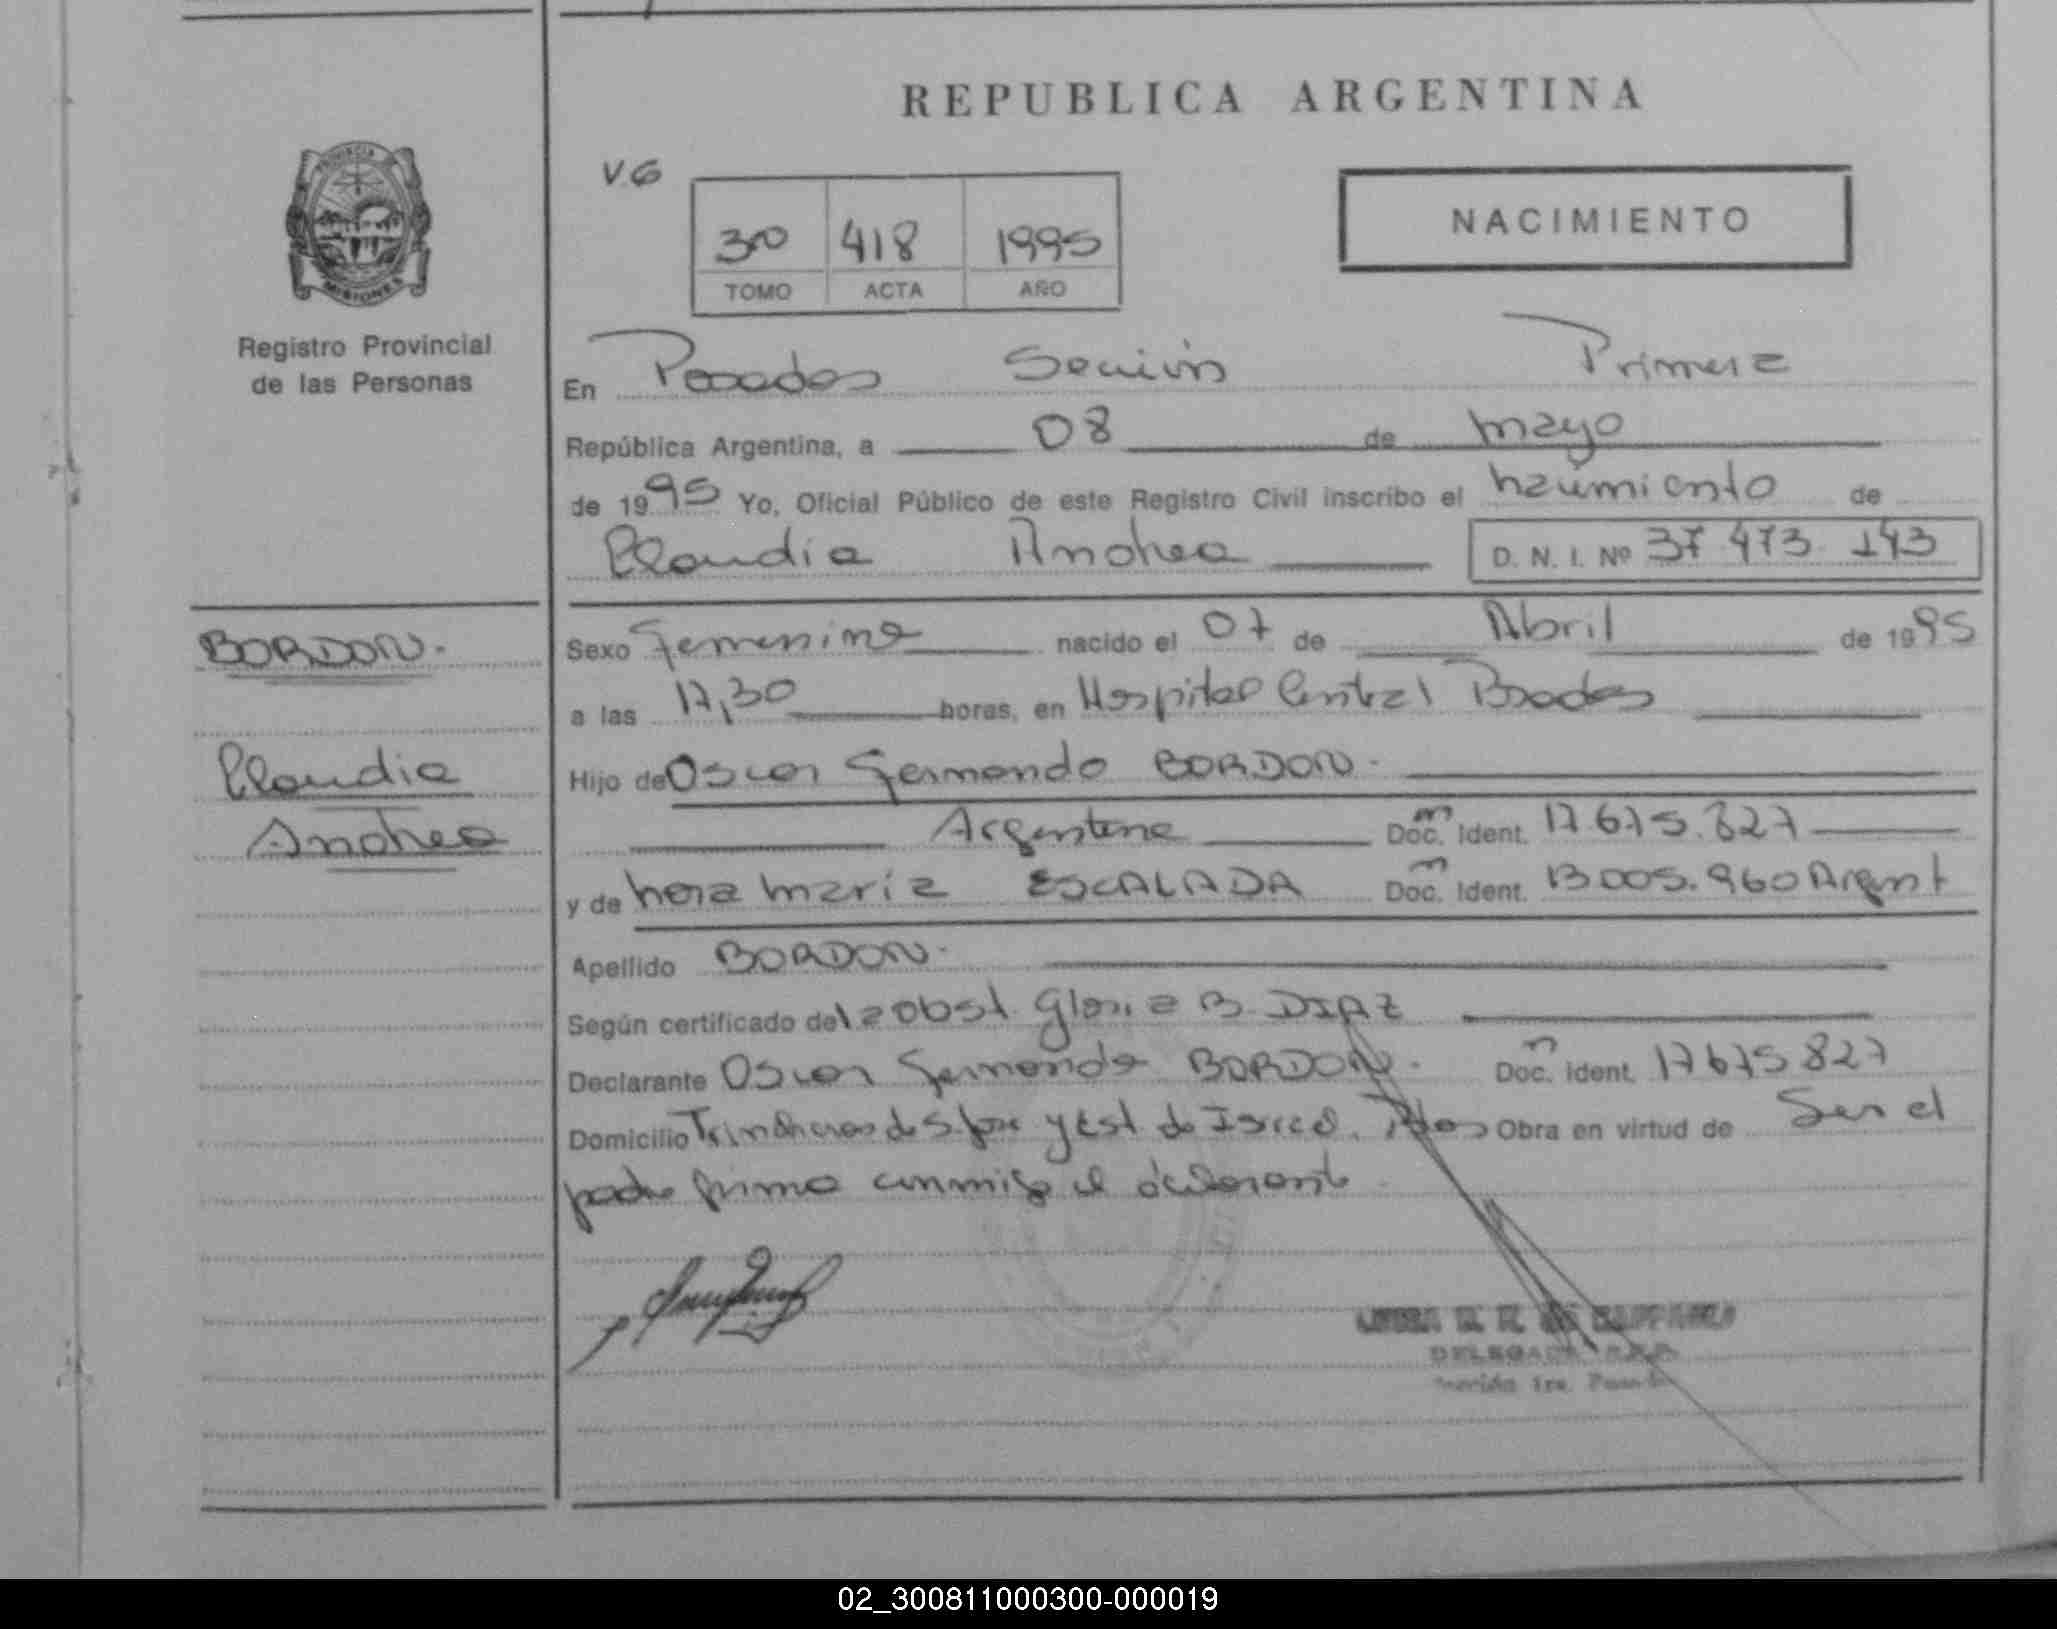 REPUBLICA ARGENTINA
V.G
30 418 1995
TOMO ACTA AÑO
NACIMIENTO
PROVINCIA
MISIONES
Registro Provincial
de las Personas
En Posadas Sección Primera
República Argentina, a 08 de mayo
de 1995 Yo, Oficial Público de este Registro Civil inscribo el nacimiento de
Claudia Andrea D. N. I. Nº 37.473.143
BORDON.
Claudia
Andrea
Sexo Femenino nacido el 07 de Abril de 1995
a las 17,30 horas, en Hospital Central Posadas
Hijo de Oscar Fernando BORDON.
Argentina Doc. Ident. 17.675.827
y de María ESCALADA Doc. Ident. 13.005.960 Argent
Apellido BORDON.
Según certificado de la Obst. Gloria B. DIAZ
Declarante Oscar Fernando BORDON. Doc. Ident. 17675827
Domicilio Trincheras de S José y Est de Pdas Obra en virtud de Ser el
padre firma conmigo el declarante.
DELEGADA R.P.P.
Sección 1ra. Posadas
02_300811000300-000019